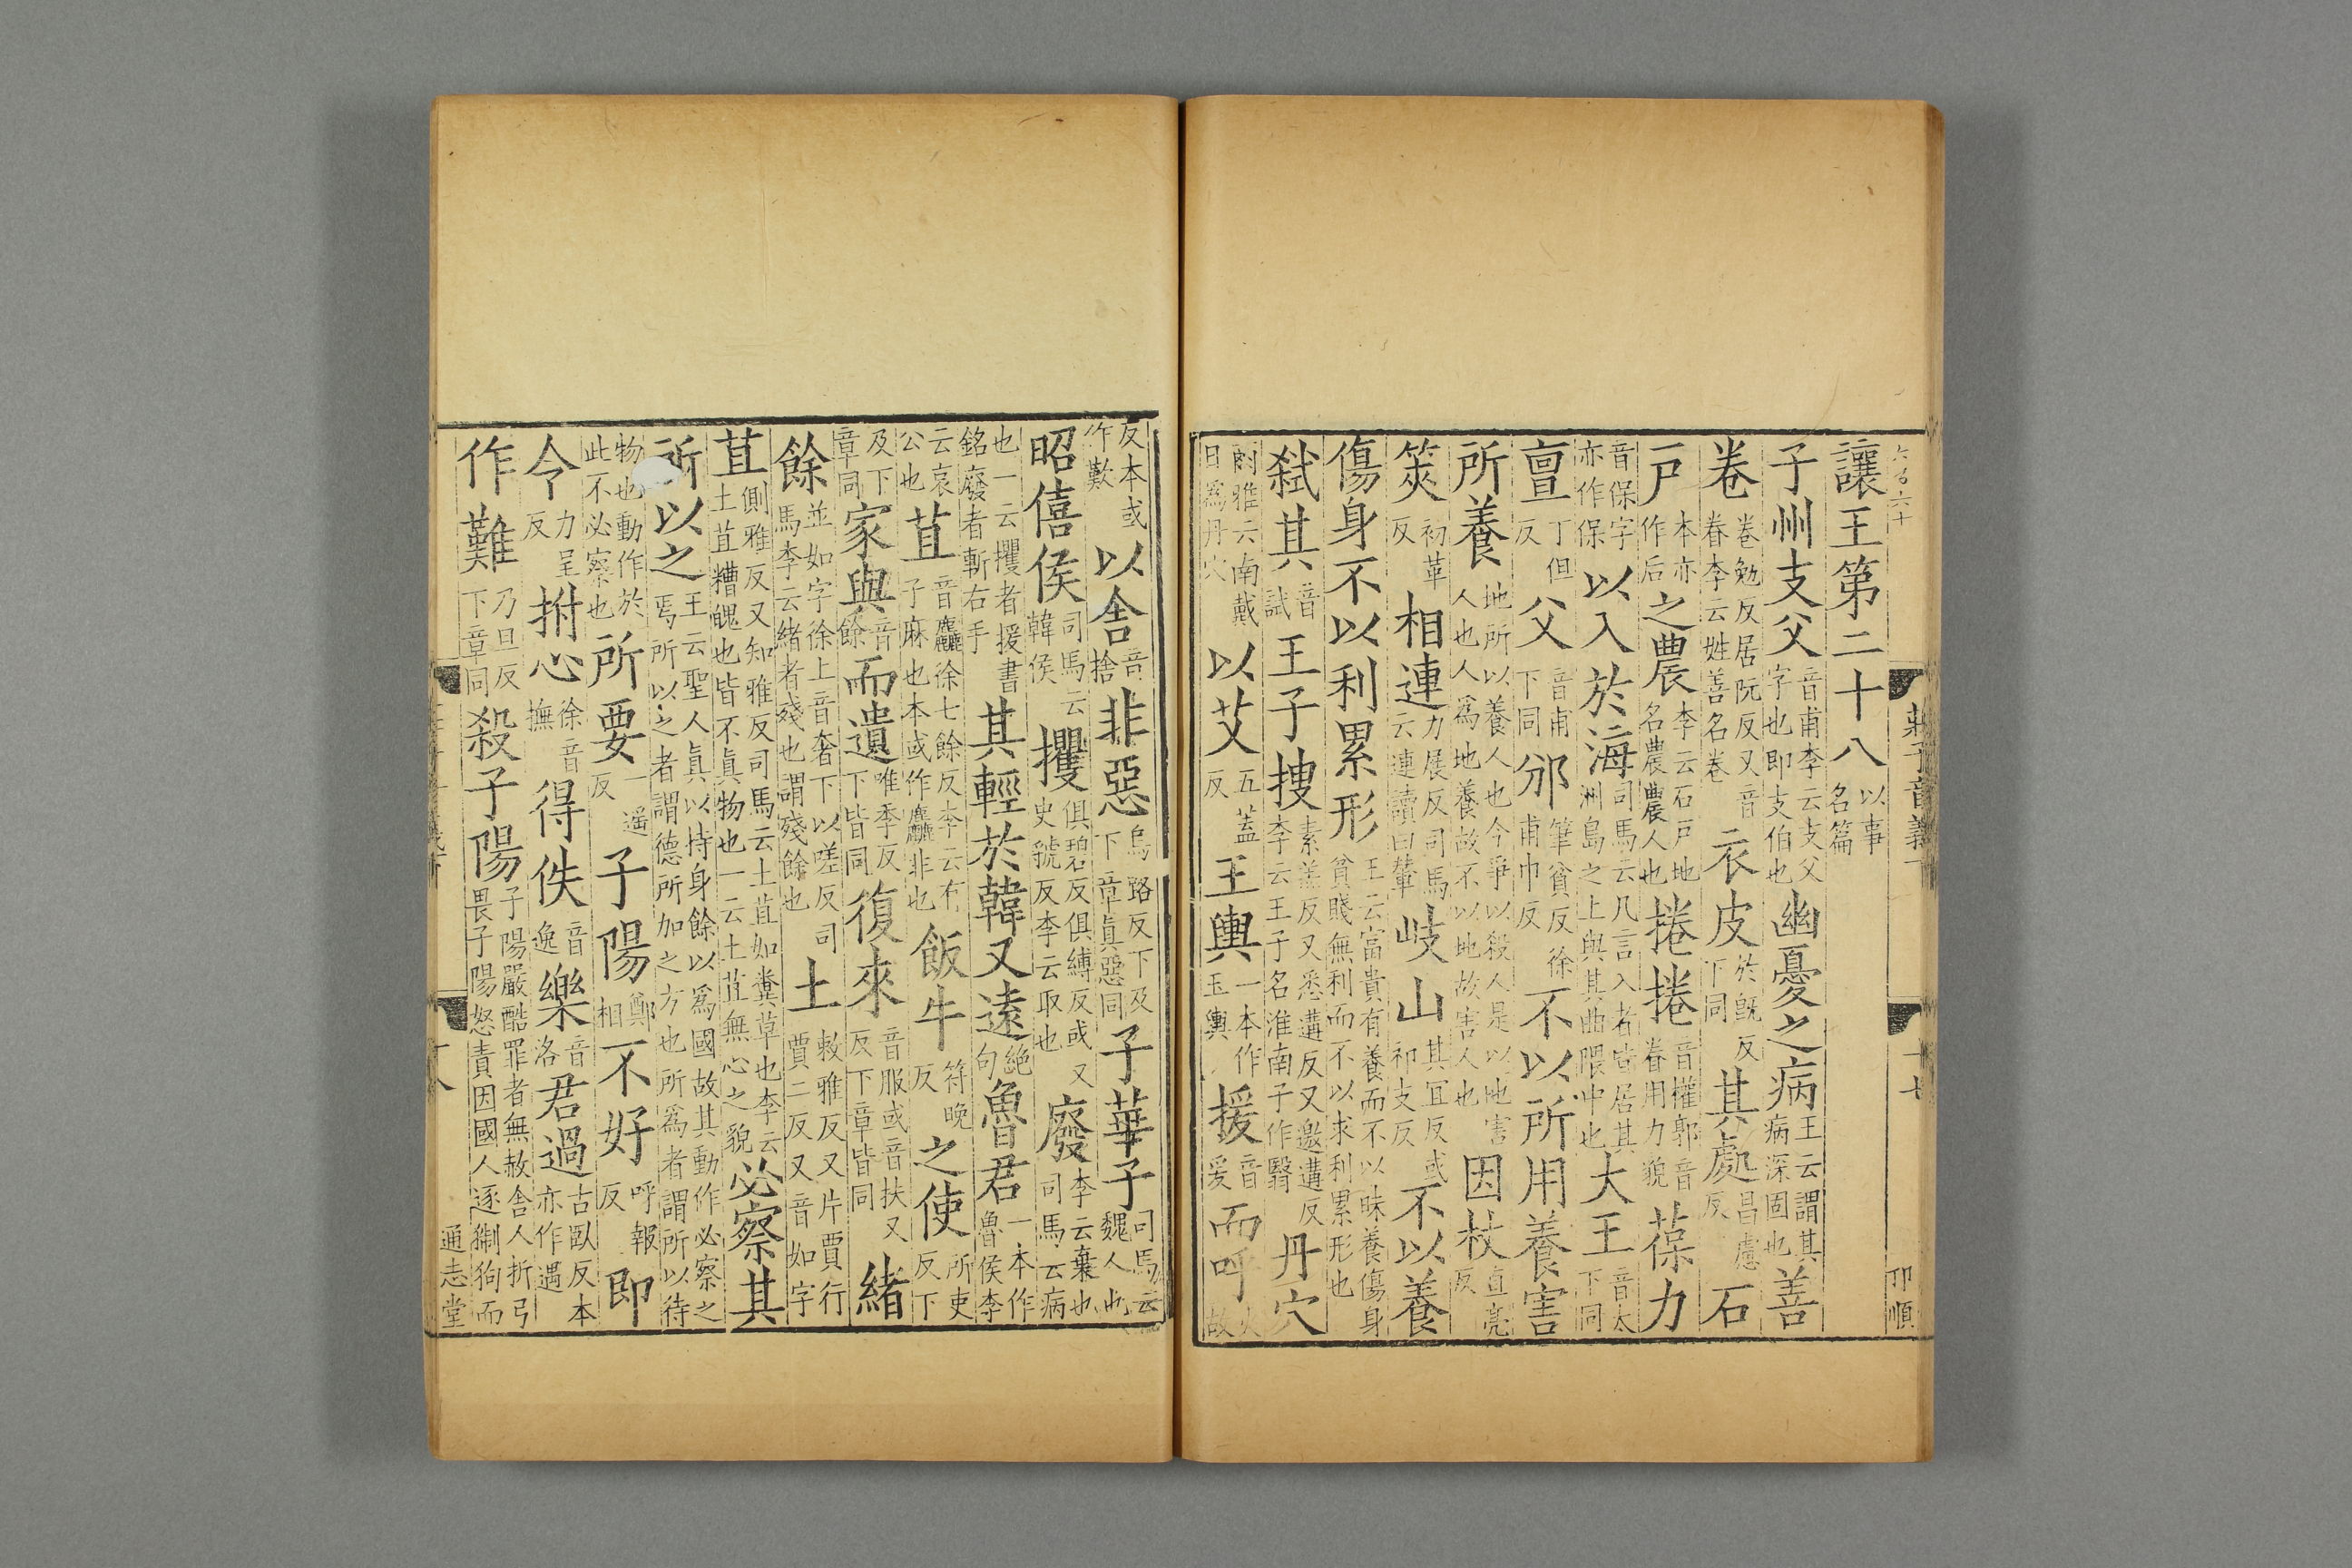 讓王第二十八以事名篇
子州支父音甫李云支父字也即支伯也幽憂之病王云謂其病深固也善
卷卷勉反居阮反又音眷李云姓善名卷衣皮於旣反下同其處昌慮反石
戸本亦作后之農李云石戸地名農農人也捲捲音權郭音眷用力貌葆力
音保字亦作保以入於海司馬云凡言入者皆居其洲島之上與其曲隈中也大王音太下同
亶丁但反父音甫下同邠筆貧反徐甫巾反不以所用養害
所養地所以養人也今爭以殺人是以地害人也人爲地養故不以地故害人也因杖直亮反
筴初革反相連力展反司馬云連讀曰輦岐山其宜反或祁支反不以養
傷身不以利累形王云富貴有養而不以昧養傷身貧賤無利而不以求利累形也
弑其音試王子搜素羔反又悉遘反又邀遘反李云王子名淮南子作翳丹穴
爾雅云南戴日爲丹穴以艾五蓋反王輿一本作玉輿援音爰而呼火故
莊子音義下
十七
卭順
反本或作歎以舍音捨非惡烏路反下及下章眞惡同子華子司馬云魏人也
昭僖侯司馬云韓侯攫俱碧反俱縛反或又史虢反李云取也廢李云棄也司馬云病
也一云攫者援書銘廢者斬右手其輕於韓又遠絶句魯君一本作魯侯李
云哀公也苴音麤徐七餘反李云有子麻也本或作麤非也飯牛符晚反之使所吏反下
及下章同家與音餘而遺唯季反下皆同復來音服或音扶又反下章皆同緒
餘並如字徐上音奢下以嗟反司馬李云緒者殘也謂殘餘也土敕雅反又片賈行賈二反又音如字
苴側雅反又知雅反司馬云土苴如糞草也李云土苴糟魄也皆不眞物也一云土苴無心之貌必察其
所以之王云聖人眞以持身餘以爲國故其動作必察之焉所以之者謂德所加之方也所爲者謂所以待
物也動作於此不必察也所要一遥反子陽鄭相不好呼報反即
令力呈反拊心徐音撫得佚音逸樂音洛君過古臥反本亦作遇
作難乃旦反下章同殺子陽子陽嚴酷罪者無赦舍人折弓畏子陽怒責因國人逐猘狗而
通志堂